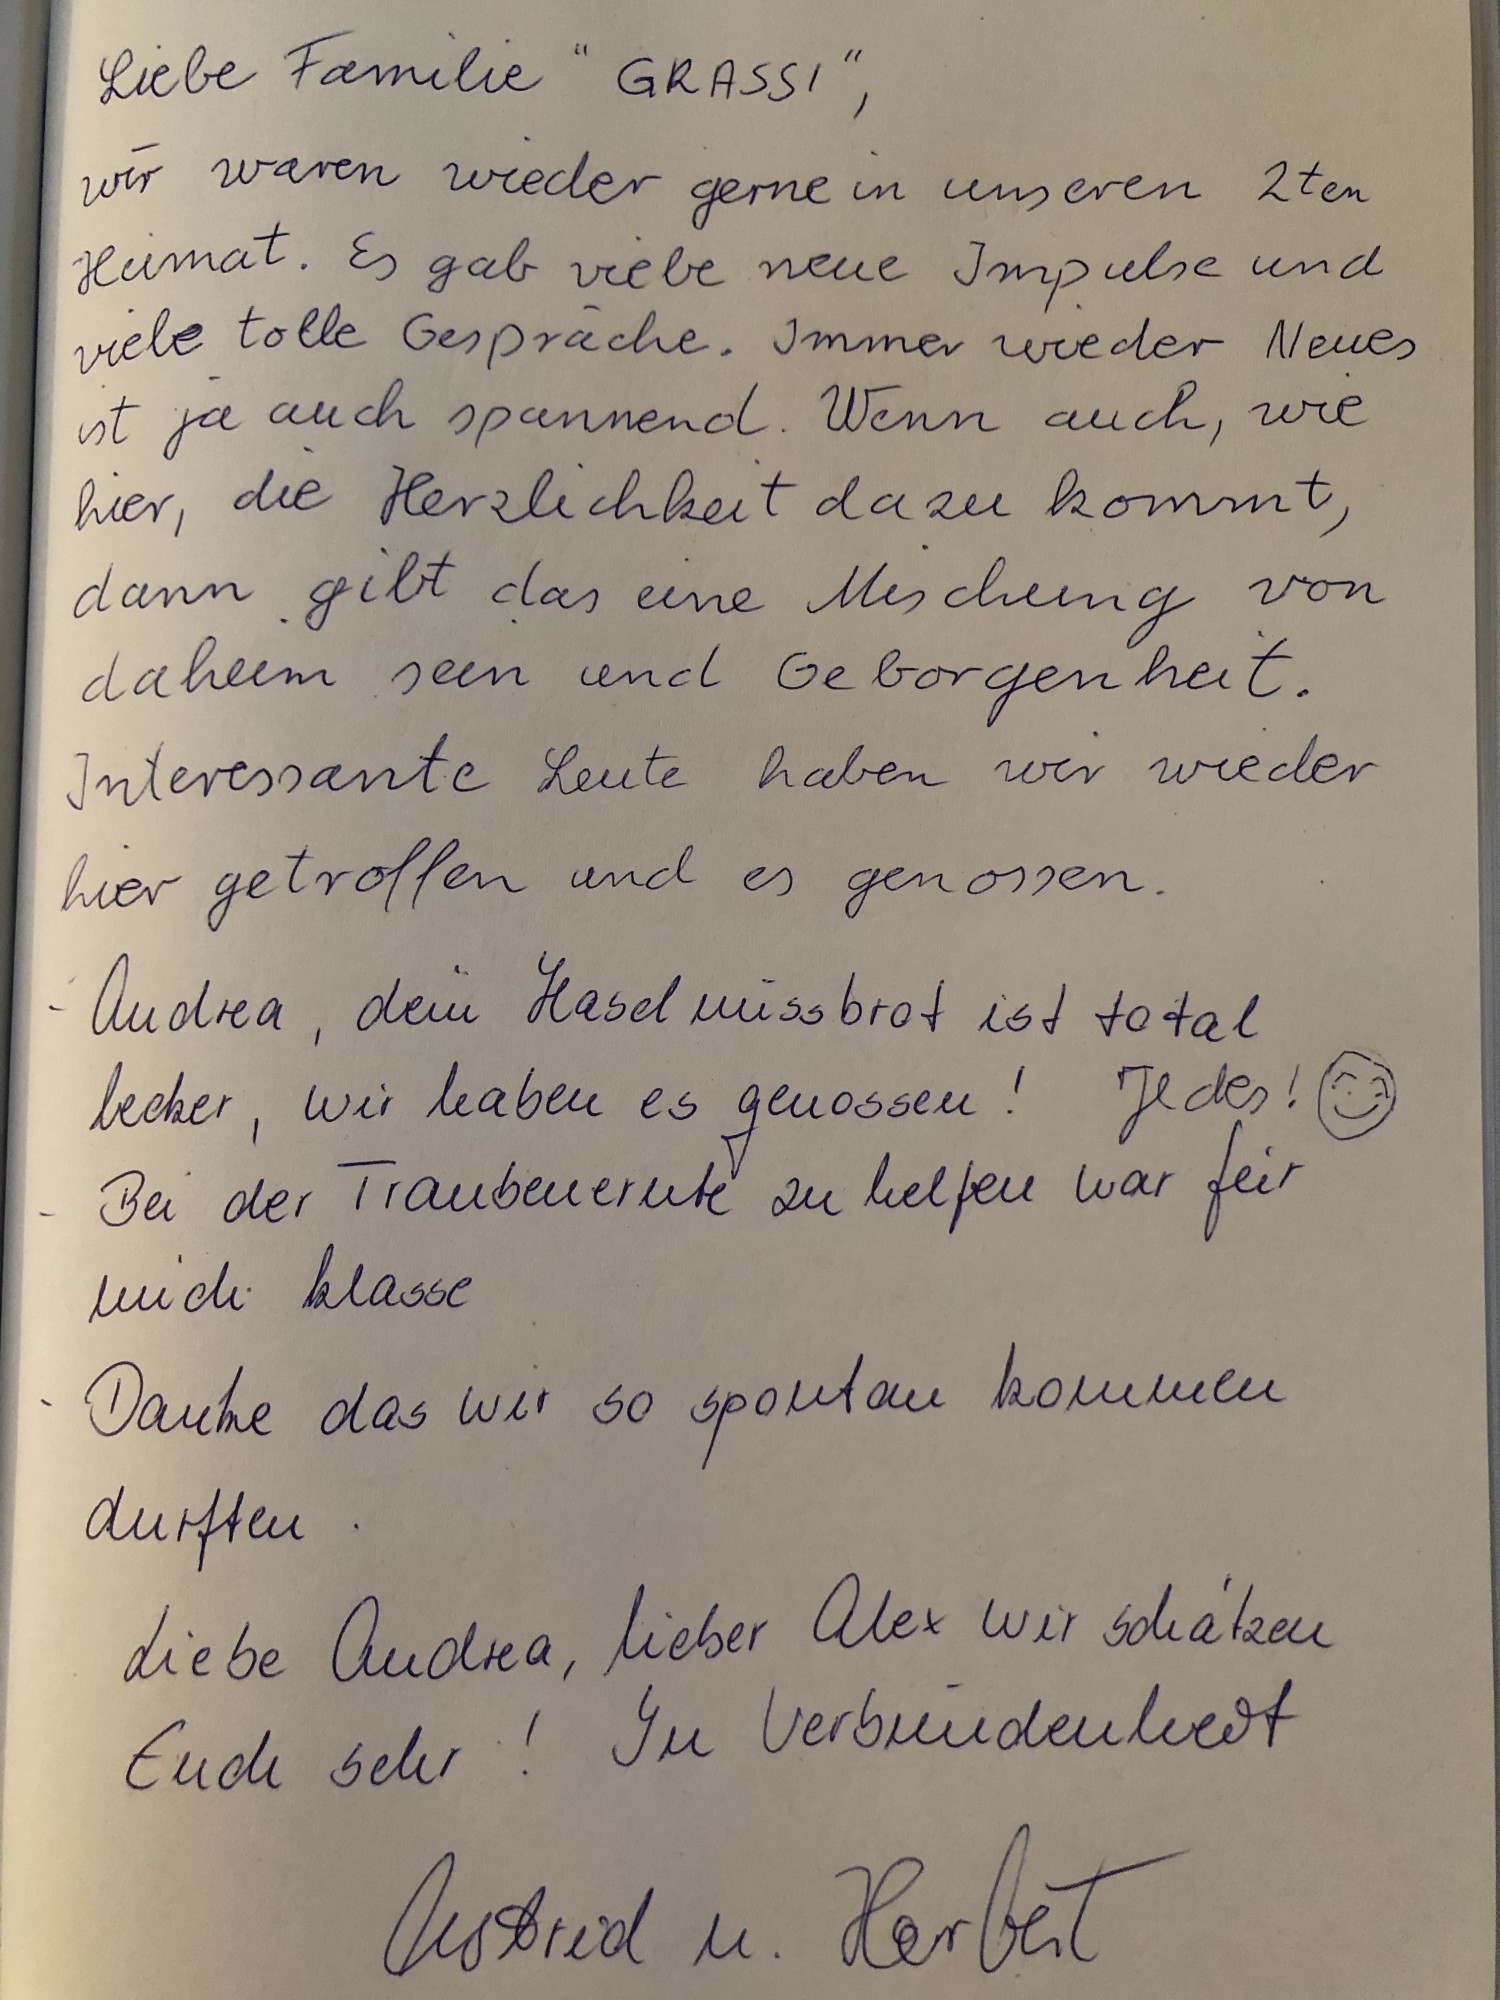 Liebe Familie "GRASSI",
wir waren wieder gerne in unseren 2ten
Heimat. Es gab viele neue Impulse und
viele tolle Gespräche. Immer wieder Neues
ist ja auch spannend. Wenn auch, wie
hier, die Herzlichkeit dazu kommt,
dann gilt das eine Mischung von
daheim sein und Geborgenheit.
Interessante Leute haben wir wieder
hier getroffen und es genossen.
- Andrea, dein Haselnussbrot ist total
lecker, wir haben es genossen! Jedes! :-)
- Bei der Traubenernte zu helfen war für
mich klasse
- Danke das wir so spontan kommen
durften.
Liebe Andrea, lieber Alex wir schätzen
Euch sehr! In Verbundenheit
Astrid u. Herbert